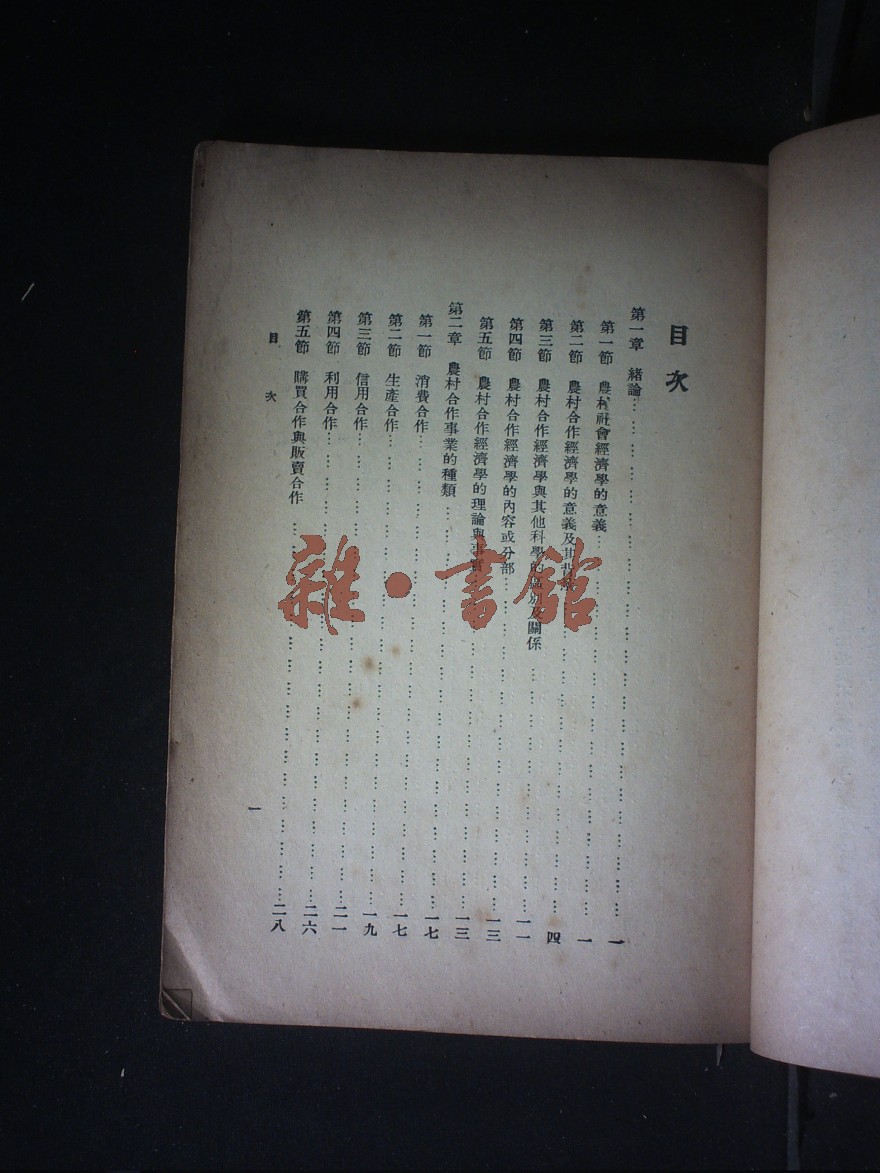 目次
第一章 緒論………………………………………………一
第一節 農村社會經濟學的意義………………………………一
第二節 農村合作經濟學的意義及其背………………………………四
第三節 農村合作經濟學與其他科學的區別及關係………………………一一
第四節 農村合作經濟學的內容或分部………………………………一三
第五節 農村合作經濟學的理論與事實………………………………一三
第二章 農村合作事業的種類………………………………一七
第一節 消費合作………………………………………一七
第二節 生產合作………………………………………一九
第三節 信用合作………………………………………二一
第四節 利用合作………………………………………二六
第五節 購買合作與販賣合作………………………………二八
目次
一
雜·書館